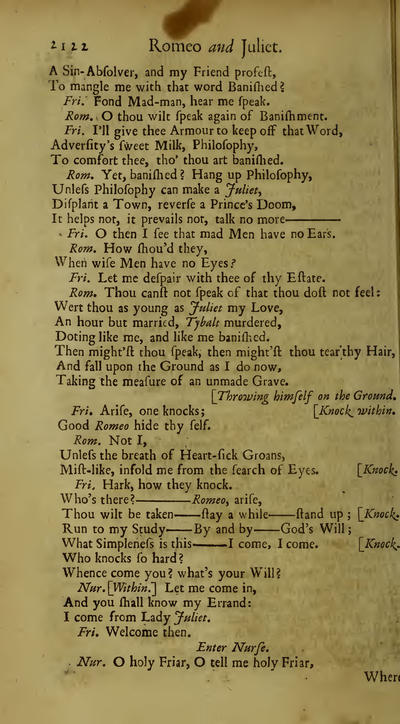 2122 Romeo and Juliet.
A Sin-Abſolver, and my Friend profeſt,
To mangle me with that word Baniſhed?
Fri. Fond Mad-man, hear me ſpeak.
Rom. O thou wilt ſpeak again of Baniſhment.
Fri. I'll give thee Armour to keep off that Word,
Adverſity's ſweet Milk, Philoſophy,
To comfort thee, tho' thou art baniſhed.
Rom. Yet, baniſhed? Hang up Philoſophy,
Unleſs Philoſophy can make a Juliet,
Diſplant a Town, reverſe a Prince's Doom,
It helps not, it prevails not, talk no more———
Fri. O then I ſee that mad Men have no Ears.
Rom. How ſhou'd they,
When wiſe Men have no Eyes?
Fri. Let me deſpair with thee of thy Eſtate.
Rom. Thou canſt not ſpeak of that thou doſt not feel:
Wert thou as young as Juliet my Love,
An hour but married, Tybalt murdered,
Doting like me, and like me baniſhed.
Then might'ſt thou ſpeak, then might'ſt thou tear thy Hair,
And fall upon the Ground as I do now,
Taking the meaſure of an unmade Grave.
[Throwing himſelf on the Ground.
Fri. Ariſe, one knocks; [Knock within.
Good Romeo hide thy ſelf.
Rom. Not I,
Unleſs the breath of Heart-ſick Groans,
Miſt-like, infold me from the ſearch of Eyes. [Knock.
Fri. Hark, how they knock.
Who's there?———Romeo, ariſe,
Thou wilt be taken——ſtay a while——ſtand up; [Knock.
Run to my Study——By and by——God's Will;
What Simpleneſs is this———I come, I come. [Knock.
Who knocks ſo hard?
Whence come you? what's your Will?
Nur. [Within.] Let me come in,
And you ſhall know my Errand:
I come from Lady Juliet.
Fri. Welcome then.
Enter Nurſe.
Nur. O holy Friar, O tell me holy Friar,
Where